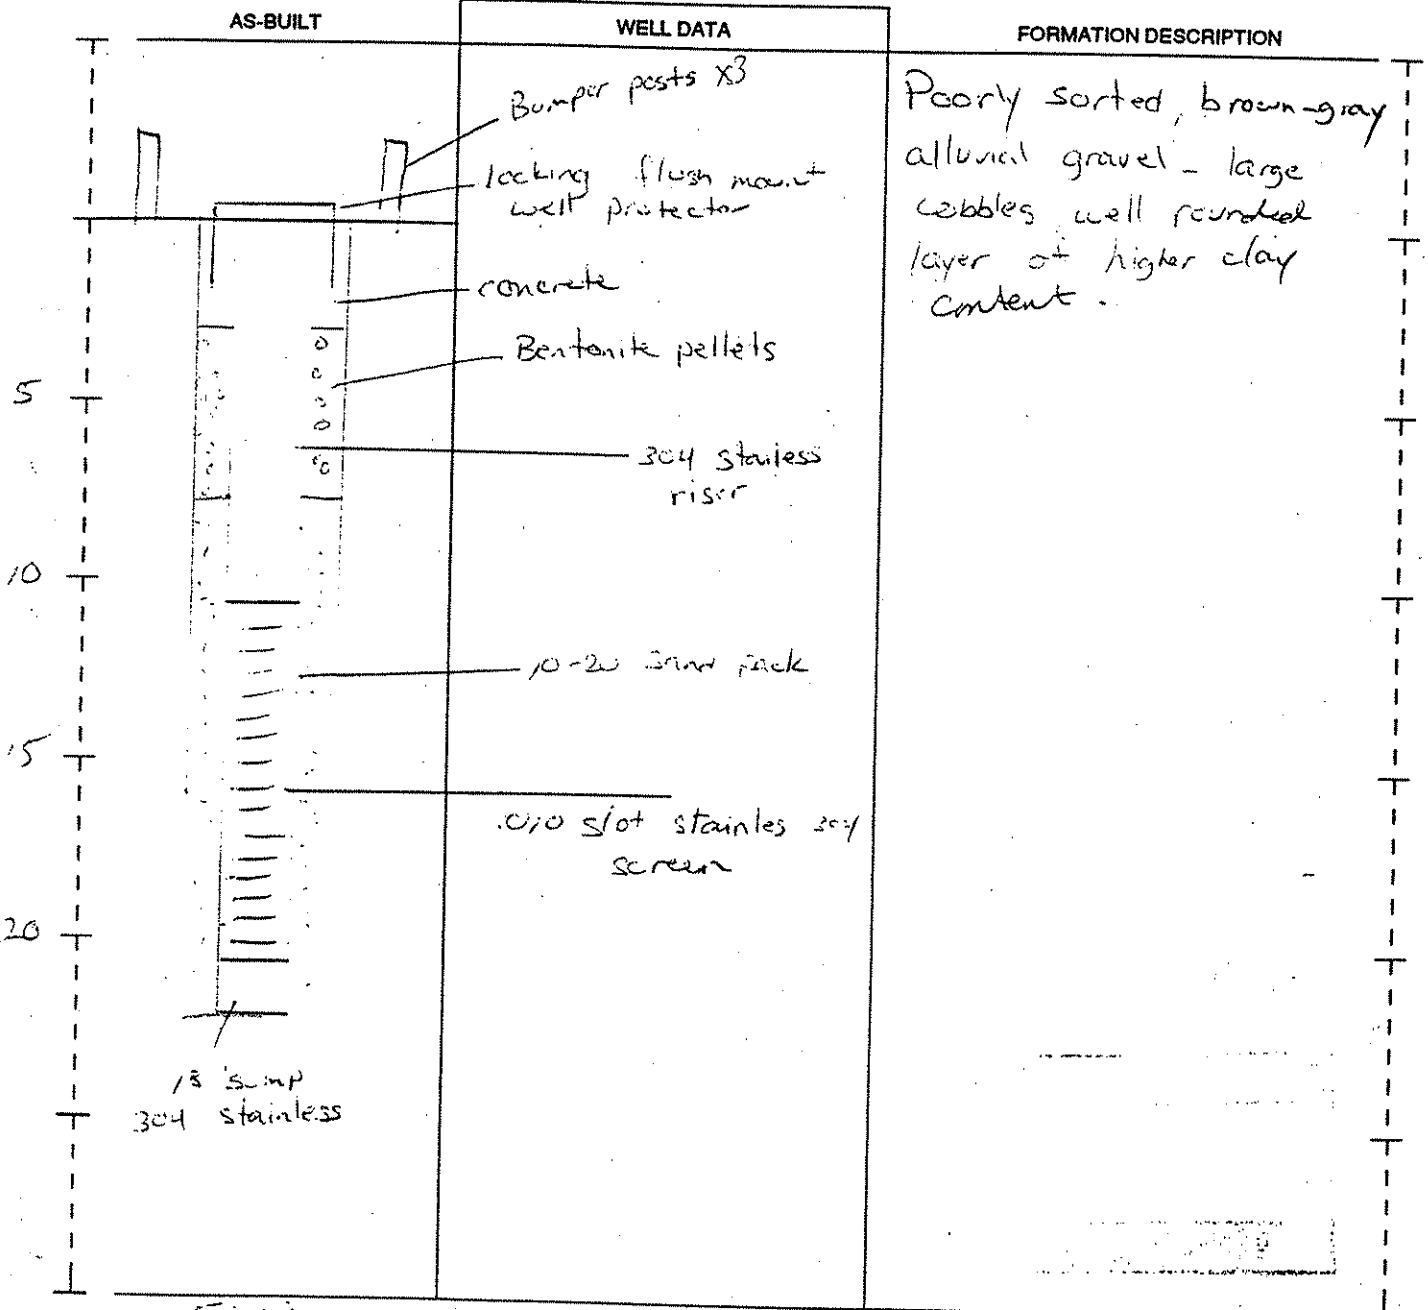 AS-BUILT
WELL DATA
FORMATION DESCRIPTION
Bumper posts x3
locking flush mount
well protector
concrete
Bentonite pellets
304 stainless
riser
10-20 sand pack
.010 slot stainles 304
screen
sump
304 stainless
5
10
15
20
Poorly sorted, brown-gray
alluvial gravel - large
cobbles well rounded
layer of higher clay
content.